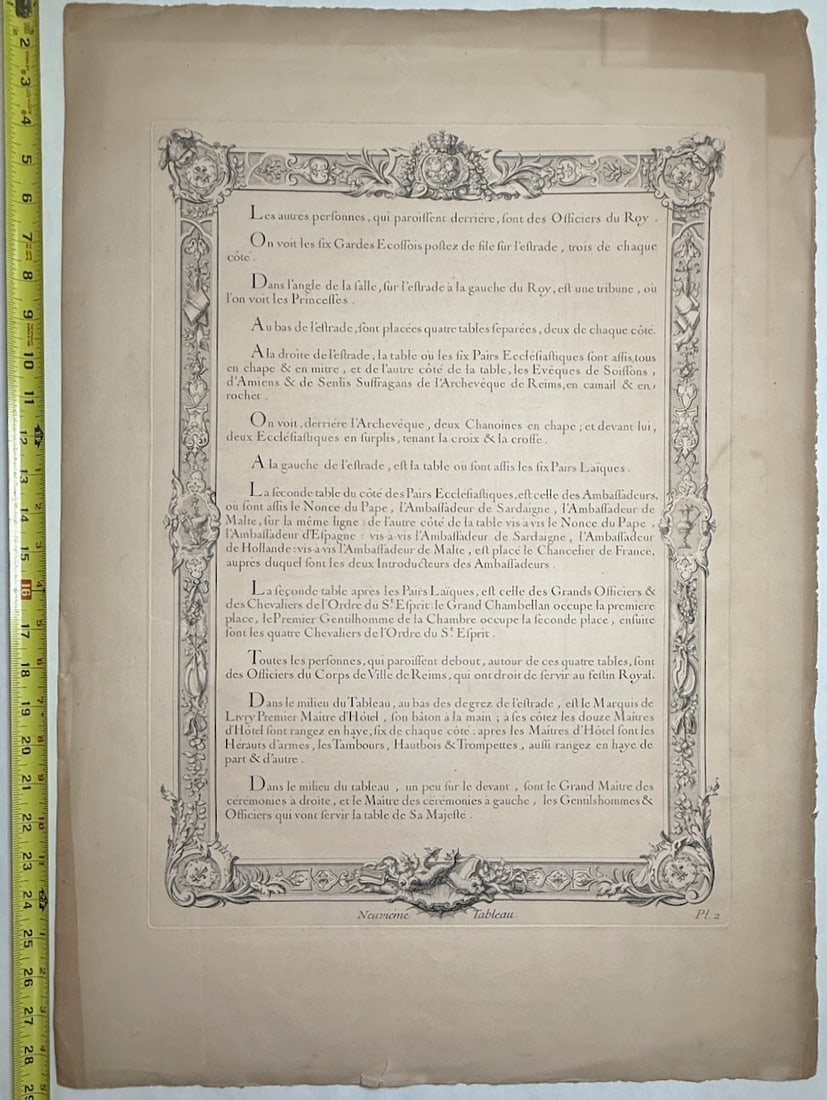 Les autres personnes, qui paroissent derriére, sont des Officiers du Roy.
On voit les six Gardes Ecossois postez de file sur l'estrade, trois de chaque
côté.
Dans l'angle de la salle, sur l'estrade à la gauche du Roy, est une tribune, où
l'on voit les Princesses.
Au bas de l'estrade, sont placées quatre tables séparées, deux de chaque côté.
A la droite de l'estrade, la table où les six Pairs Ecclésiastiques sont assis, tous
en chape & en mitre, et de l'autre côté de la table, les Evêques de Soissons,
d'Amiens & de Senlis Suffragans de l'Archevêque de Reims, en camail & en
rochet.
On voit, derriére l'Archevêque, deux Chanoines en chape; et devant lui,
deux Ecclésiastiques en surplis, tenant la croix & la crosse.
A la gauche de l'estrade, est la table où sont assis les six Pairs Laïques.
La seconde table du côté des Pairs Ecclésiastiques, est celle des Ambassadeurs,
où sont assis le Nonce du Pape, l'Ambassadeur de Sardaigne, l'Ambassadeur de
Malte, sur la même ligne: de l'autre côté de la table vis à vis le Nonce du Pape,
l'Ambassadeur d'Espagne: vis-à-vis l'Ambassadeur de Sardaigne, l'Ambassadeur
de Hollande: vis-à-vis l'Ambassadeur de Malte, est placé le Chancelier de France,
auprès duquel sont les deux Introducteurs des Ambassadeurs.
La seçonde table après les Pairs Laïques, est celle des Grands Officiers &
des Chevaliers de l'Ordre du St. Esprit: le Grand Chambellan occupe la première
place, le Premier Gentilhomme de la Chambre occupe la seconde place, ensuite
sont les quatre Chevaliers de l'Ordre du St. Esprit.
Toutes les personnes, qui paroissent debout, autour de ces quatre tables, sont
des Officiers du Corps de Ville de Reims, qui ont droit de servir au festin Royal.
Dans le milieu du Tableau, au bas des degrez de l'estrade, est le Marquis de
Livry Premier Maître d'Hôtel, son bâton à la main; à ses côtez les douze Maîtres
d'Hôtel sont rangez en haye, six de chaque côté: après les Maîtres d'Hôtel sont les
Hérauts d'armes, les Tambours, Hautbois & Trompettes, aussi rangez en haye de
part & d'autre.
Dans le milieu du tableau, un peu sur le devant, sont le Grand Maître des
cérémonies à droite, et le Maître des cérémonies à gauche, les Gentilshommes &
Officiers qui vont servir la table de Sa Majesté.
Neuviéme Tableau.
Pl. 2
2
3
4
5
6
7
8
9
10
11
12
13
14
15
16
17
18
19
20
21
22
23
24
25
26
27
28